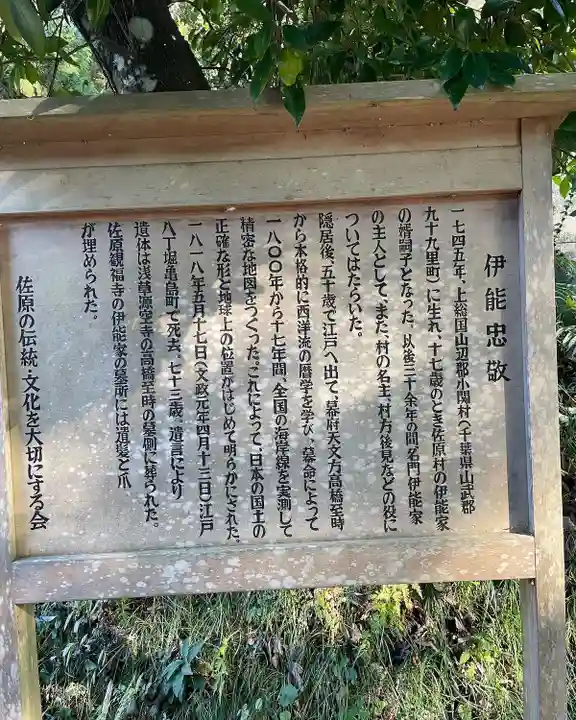 伊能忠敬
一七四五年、上総国山辺郡小関村(千葉県山武郡
九十九里町)に生れ、十七歳のとき佐原村の伊能家
の婿嗣子となった。以後三十余年の間名門伊能家
の主人として、また、村の名主、村方後見などの役に
ついてはたらいた。
隠居後、五十歳で江戸へ出て、幕府天文方高橋至時
から本格的に西洋流の暦学を学び、幕命によって
一八〇〇年から十七年間、全国の海岸線を実測して
精密な地図をつくった。これによって、日本の国土の
正確な形と地球上の位置がはじめて明らかにされた。
一八一八年五月十七日(文政元年四月十三日)江戸
八丁堀亀島町で死去、七十三歳。遺言により
遺体は浅草源空寺の高橋至時の墓側に葬られた。
佐原観福寺の伊能家の墓所には遺髪と爪
が埋められた。
佐原の伝統・文化を大切にする会